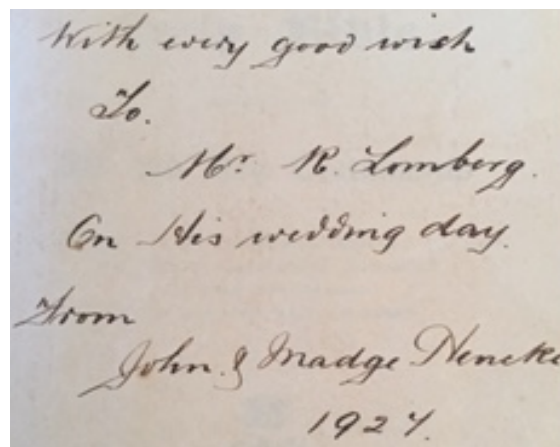 With every good wish
To.
Mr. R. Lomberg.
On His wedding day.
From
John & Madge Heneke
1927.